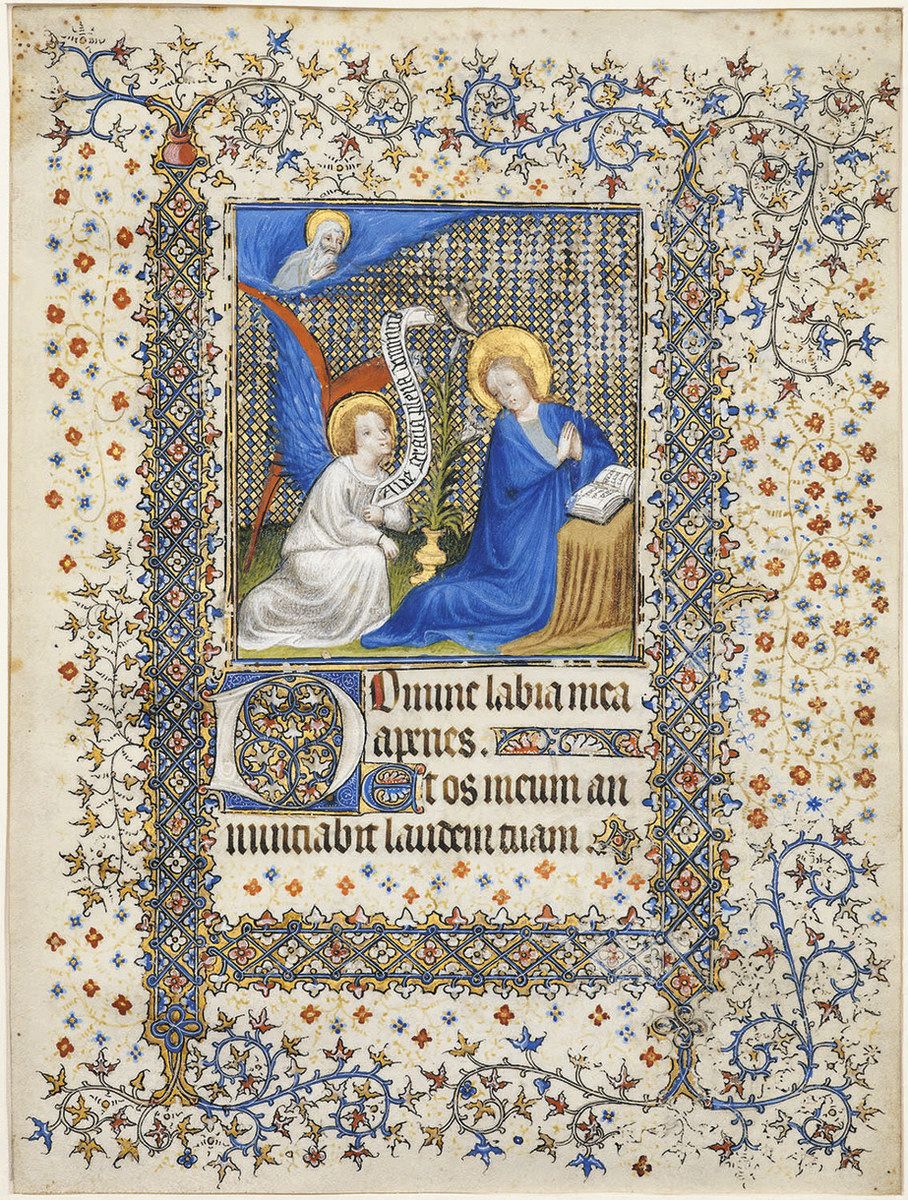 Aue gracia plena dominu
Domine labia mea
aperies.
Et os meum an
nunciabit laudem tuam.